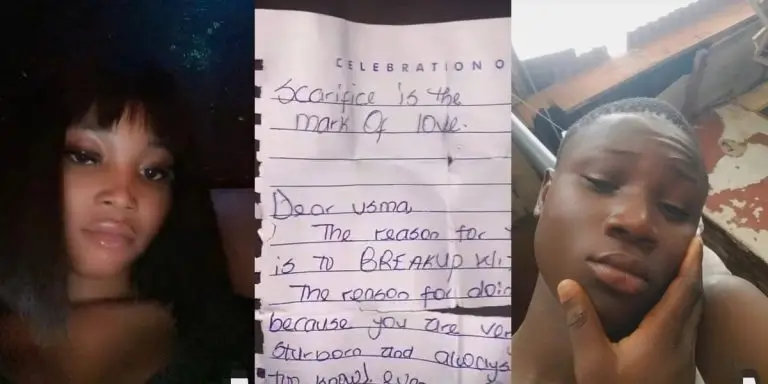 CELEBRATION O
Scarifice is the
mark Of love.
Dear usma,
The reason for
is TO BREAKUP
The reason for doin
because you are ver
Sturborn and always